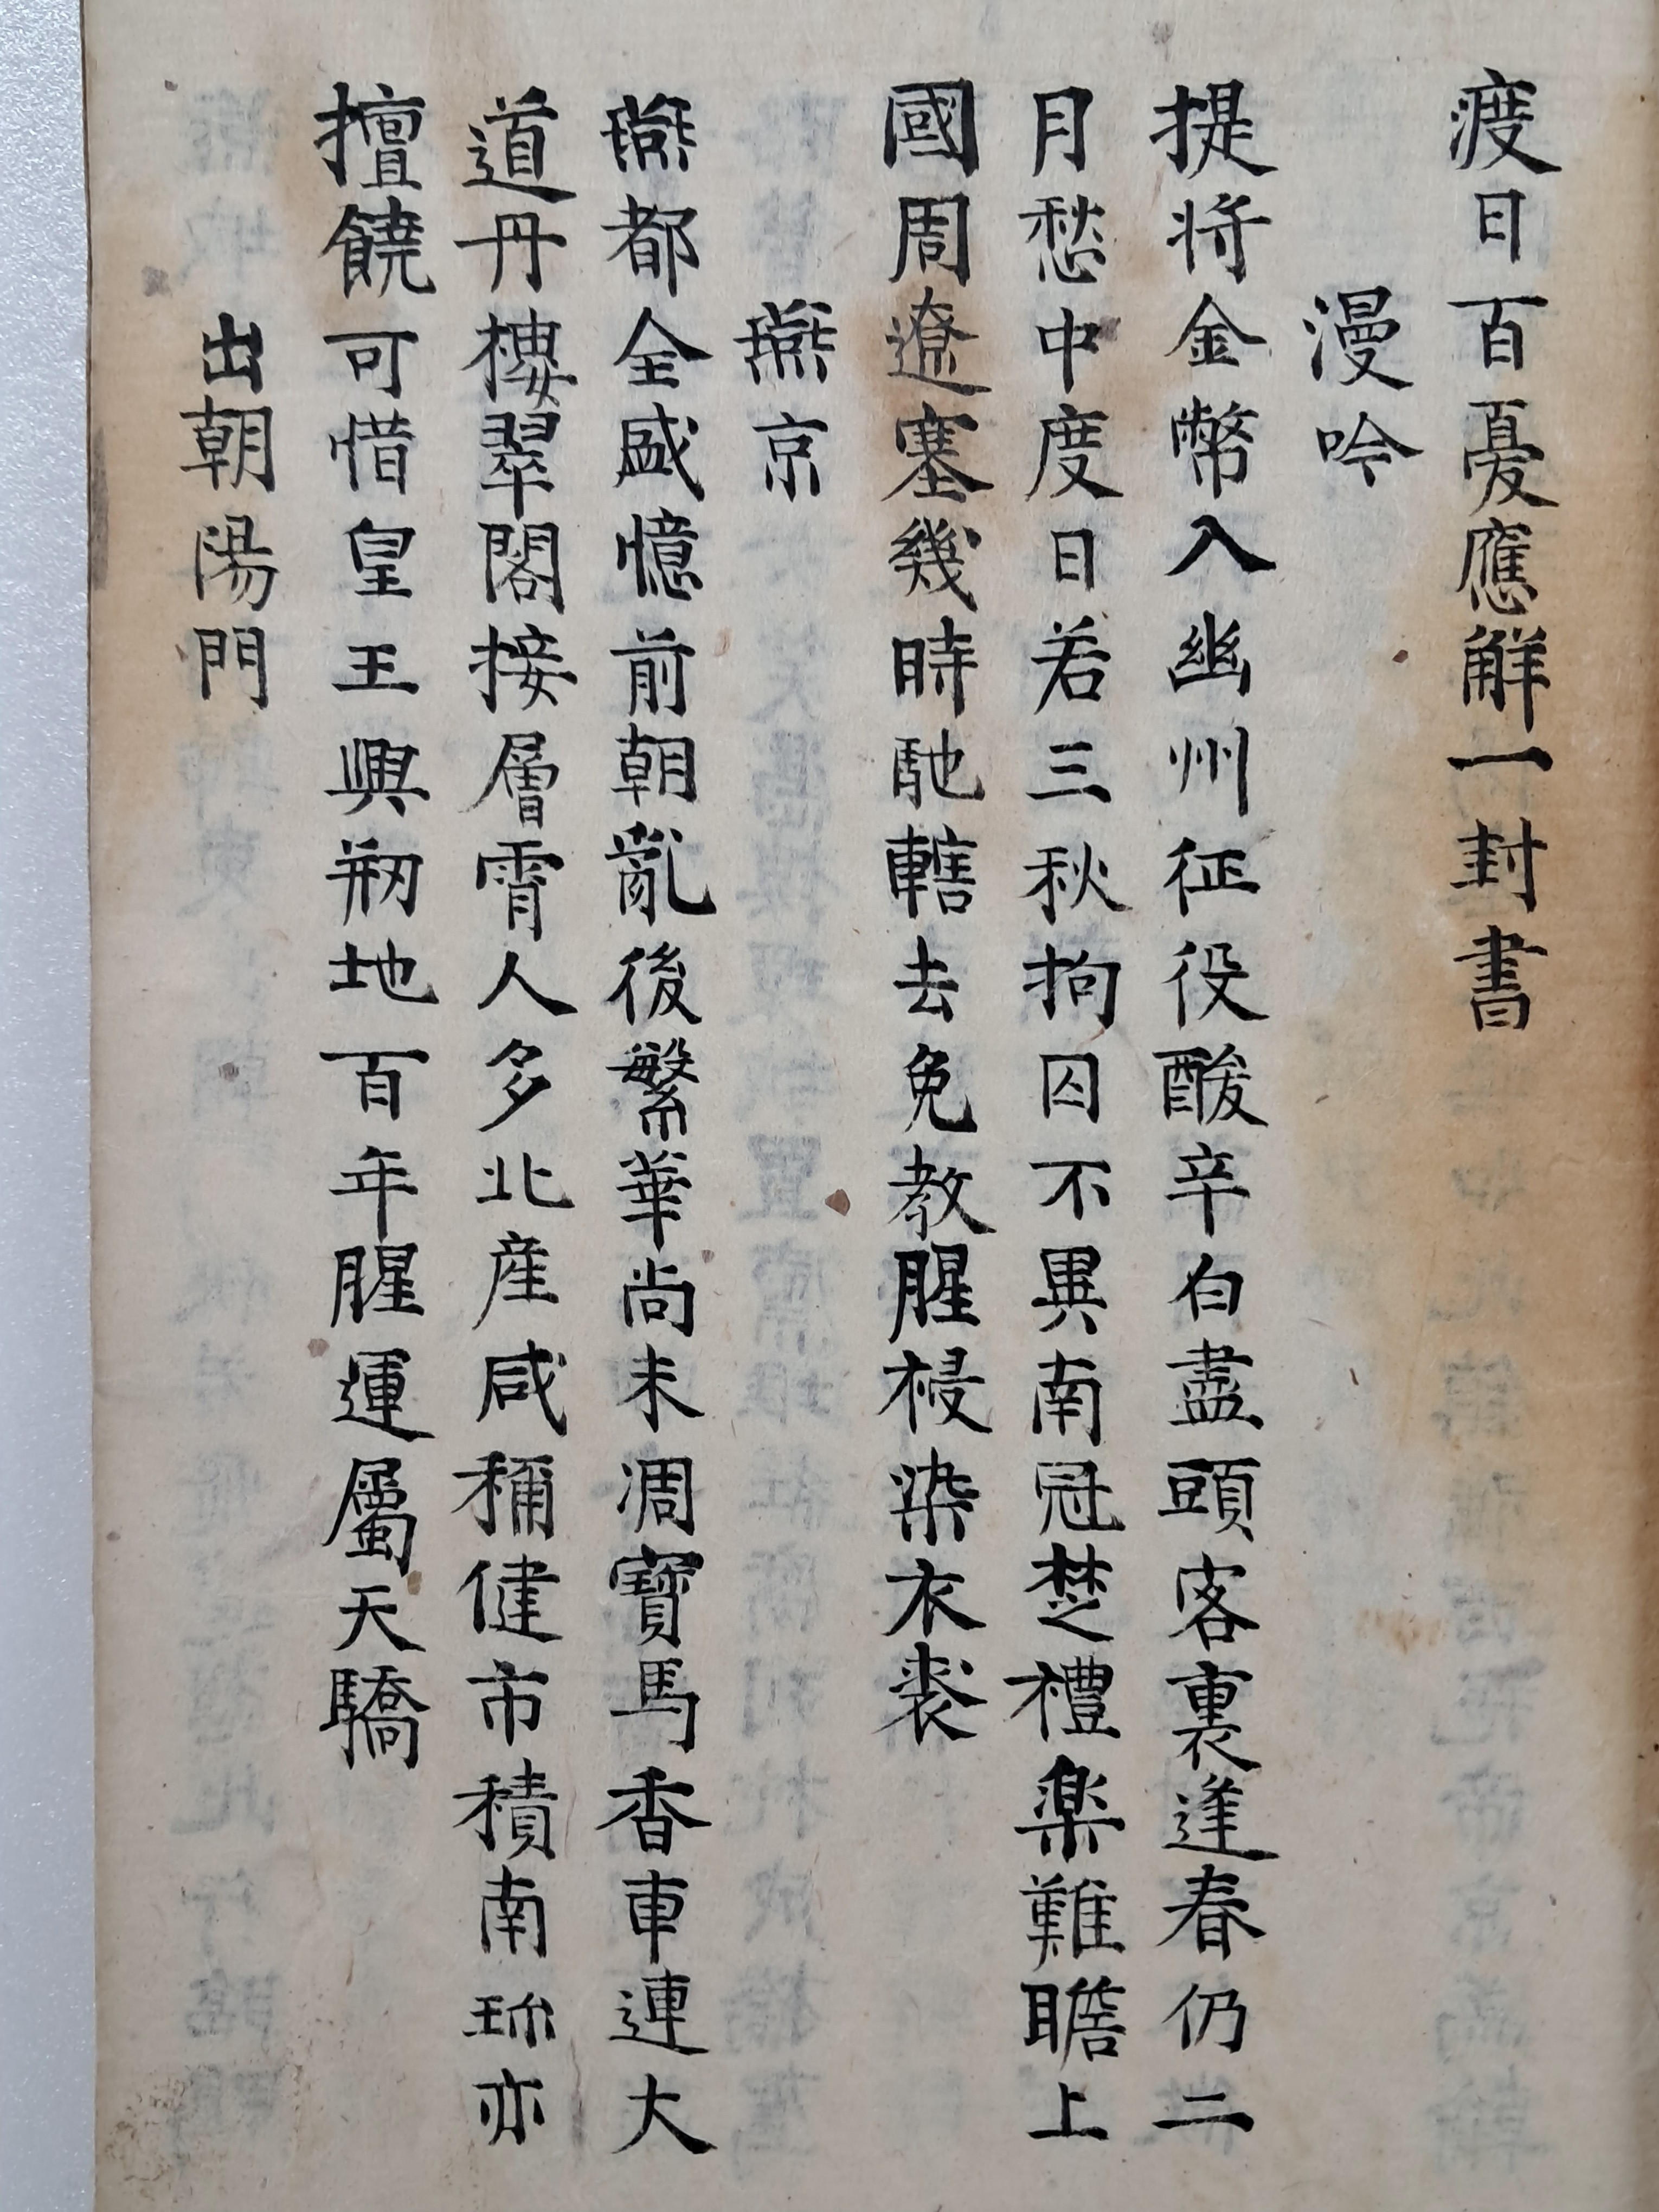 渡日百憂應觧一封書
漫吟
提将金幣入幽州征役酸辛白盡頭客裏逢春仍二
月愁中度日若三秋拘囚不異南冠楚禮楽難瞻上
國周遼塞幾時馳轄去免教腥祲染衣裘
燕京
燕都全盛憶前朝亂後繁華尚未凋寶馬香車連大
道丹樓翠閣接層霄人多北産咸稱健市積南珎亦
擅饒可惜皇王興刱地百年腥運屬天驕
出朝陽門